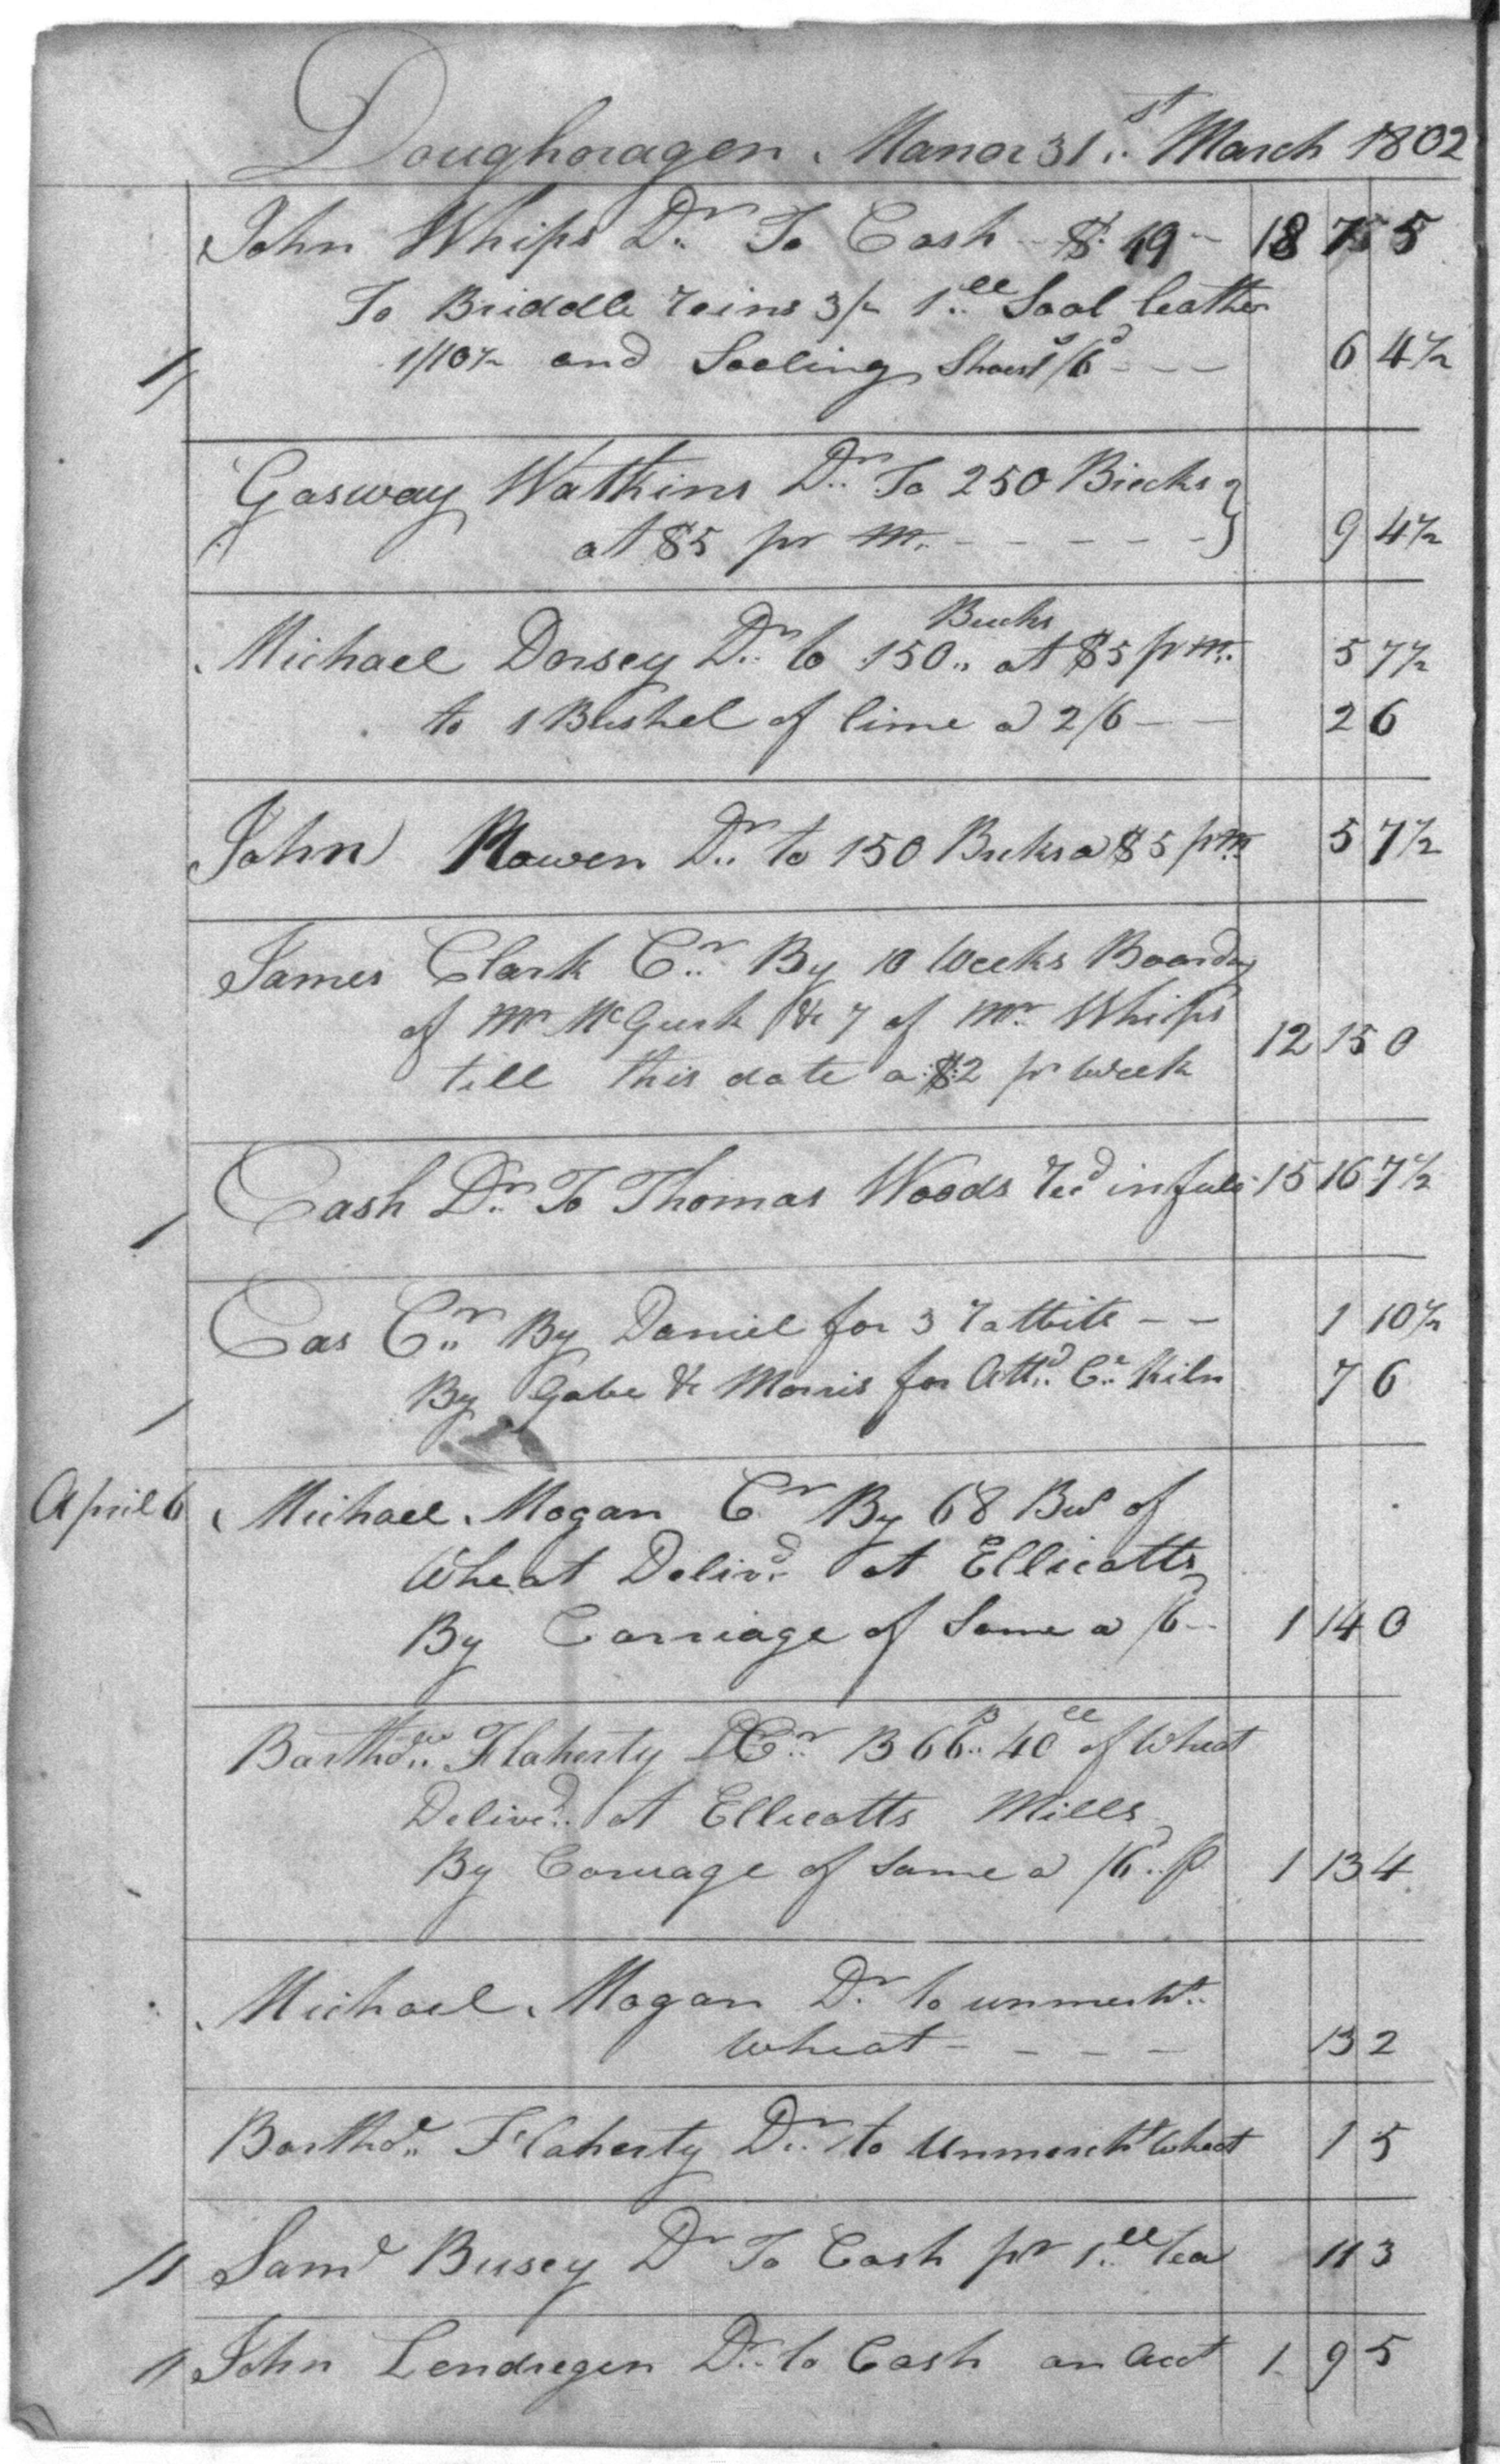 Doughoragen Manor 31st March 1802
John Whips Dr To Cash $ 49 18 7 5
To Briddle reins 3/- 1 ll Soal leather
1/10½ and Soaling Shoes 1/6d 6 4½
Gasway Watkins Dr To 250 Bricks
at $5 pr m. 9 4½
Bricks
Michael Dorsey Dr to 150 at $5 p m. 5 7½
to 1 Bushel of lime a 2/6 2 6
John Rowen Dr to 150 Bricks a $5 p m 5 7½
James Clark Cr By 10 Weeks Boarding
of Mr McGurk & 7 of Mr Whips
till this date a $2 pr week 12 15 0
Cash Dr To Thomas Woods recd in full 15 16 7½
Cas Cr By Daniel for 3 rabbits 1 10½
By Gabe & Morris for Attd Kiln 7 6
April 6 Michael Mogan Cr By 68 Bus of
Wheat Delivd at Ellicotts
By Carriage of Same a /6 1 14 0
Bartho Flaherty Cr B 66 B 40 ll of Wheat
Delived at Ellicotts Mills
By Carriage of Same a /6d p 1 13 4
Michael Mogan Dr to unmercht
Wheat 13 2
Bartho Flaherty Dr to Unmercht Wheat 1 5
Saml Busey Dr To Cash pr 1 ll tea 11 3
John Lendregen Dr to Cash on Acct 1 9 5